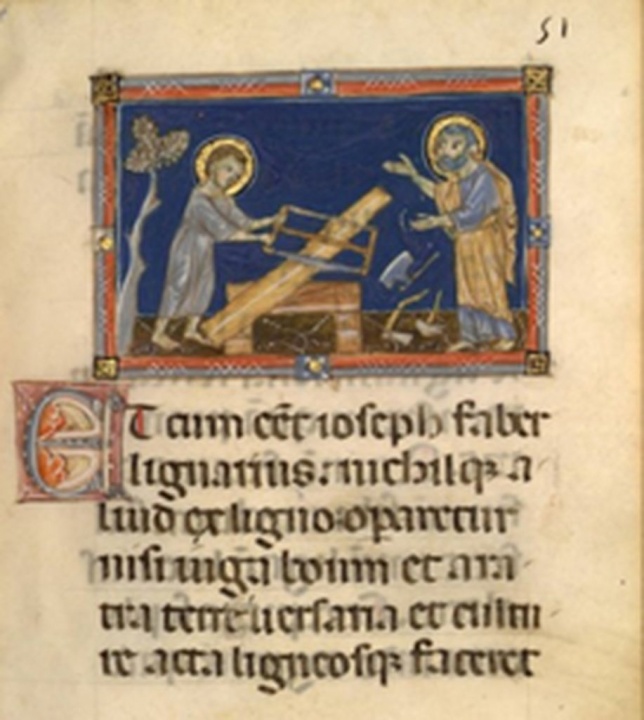 51
ET cum eēt ioseph faber
lignarius: nichilqꝫ a
liud ex ligno operaretur
nisi iuiga boum et ara
tra terre uersaria et cultu
re acta ligneosqꝫ faceret